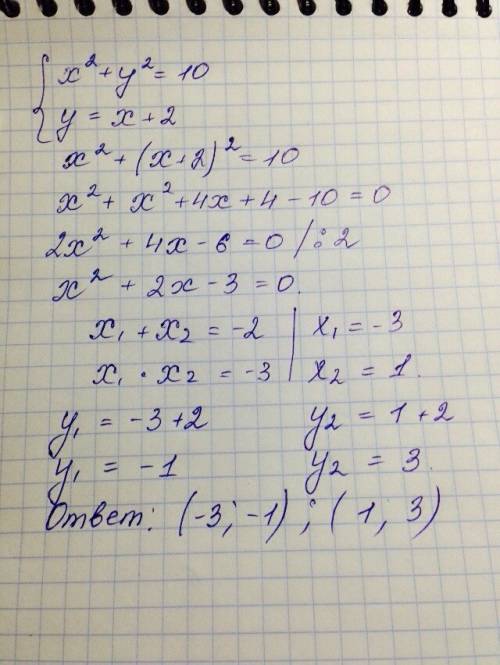 { x² + y² = 10
y = x + 2
x² + (x+2)² = 10
x² + x² + 4x + 4 - 10 = 0
2x² + 4x - 6 = 0 /:2
x² + 2x - 3 = 0.
x₁ + x₂ = -2 | x₁ = -3
x₁ · x₂ = -3 | x₂ = 1.
y₁ = -3+2 y₂ = 1+2
y₁ = -1 y₂ = 3.
Ответ: (-3; -1) ; (1, 3)